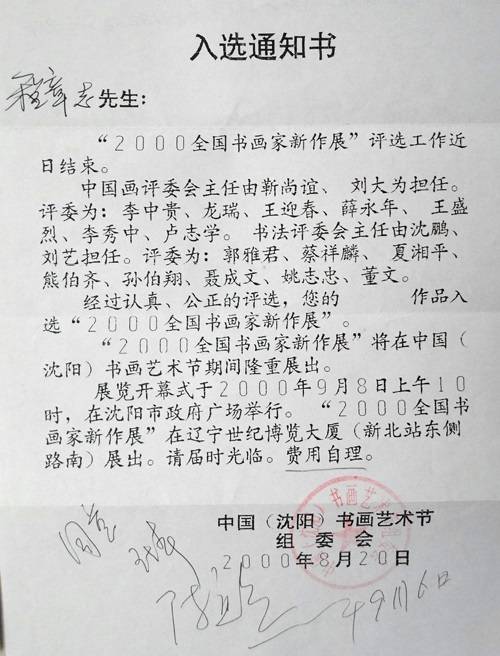 入选通知书
程章志先生：
“2000全国书画家新作展”评选工作近
日结束。
中国画评委会主任由靳尚谊、刘大为担任。
评委为：李中贵、龙瑞、王迎春、薛永年、王盛
烈、李秀中、卢志学。书法评委会主任由沈鹏、
刘艺担任。评委为：郭雅君、蔡祥麟、夏湘平、
熊伯齐、孙伯翔、聂成文、姚志忠、董文。
经过认真、公正的评选，您的 作品入
选“2000全国书画家新作展”。
“2000全国书画家新作展”将在中国（
沈阳）书画艺术节期间隆重展出。
展览开幕式于2000年9月8日上午10
时，在沈阳市政府广场举行。“2000全国书
画家新作展”在辽宁世纪博览大厦（新北站东侧
路南）展出。请届时光临。费用自理。
中国（沈阳）书画艺术节
组委会
2000年8月20日
9月6日